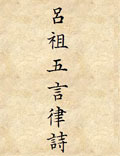 呂祖五言律詩